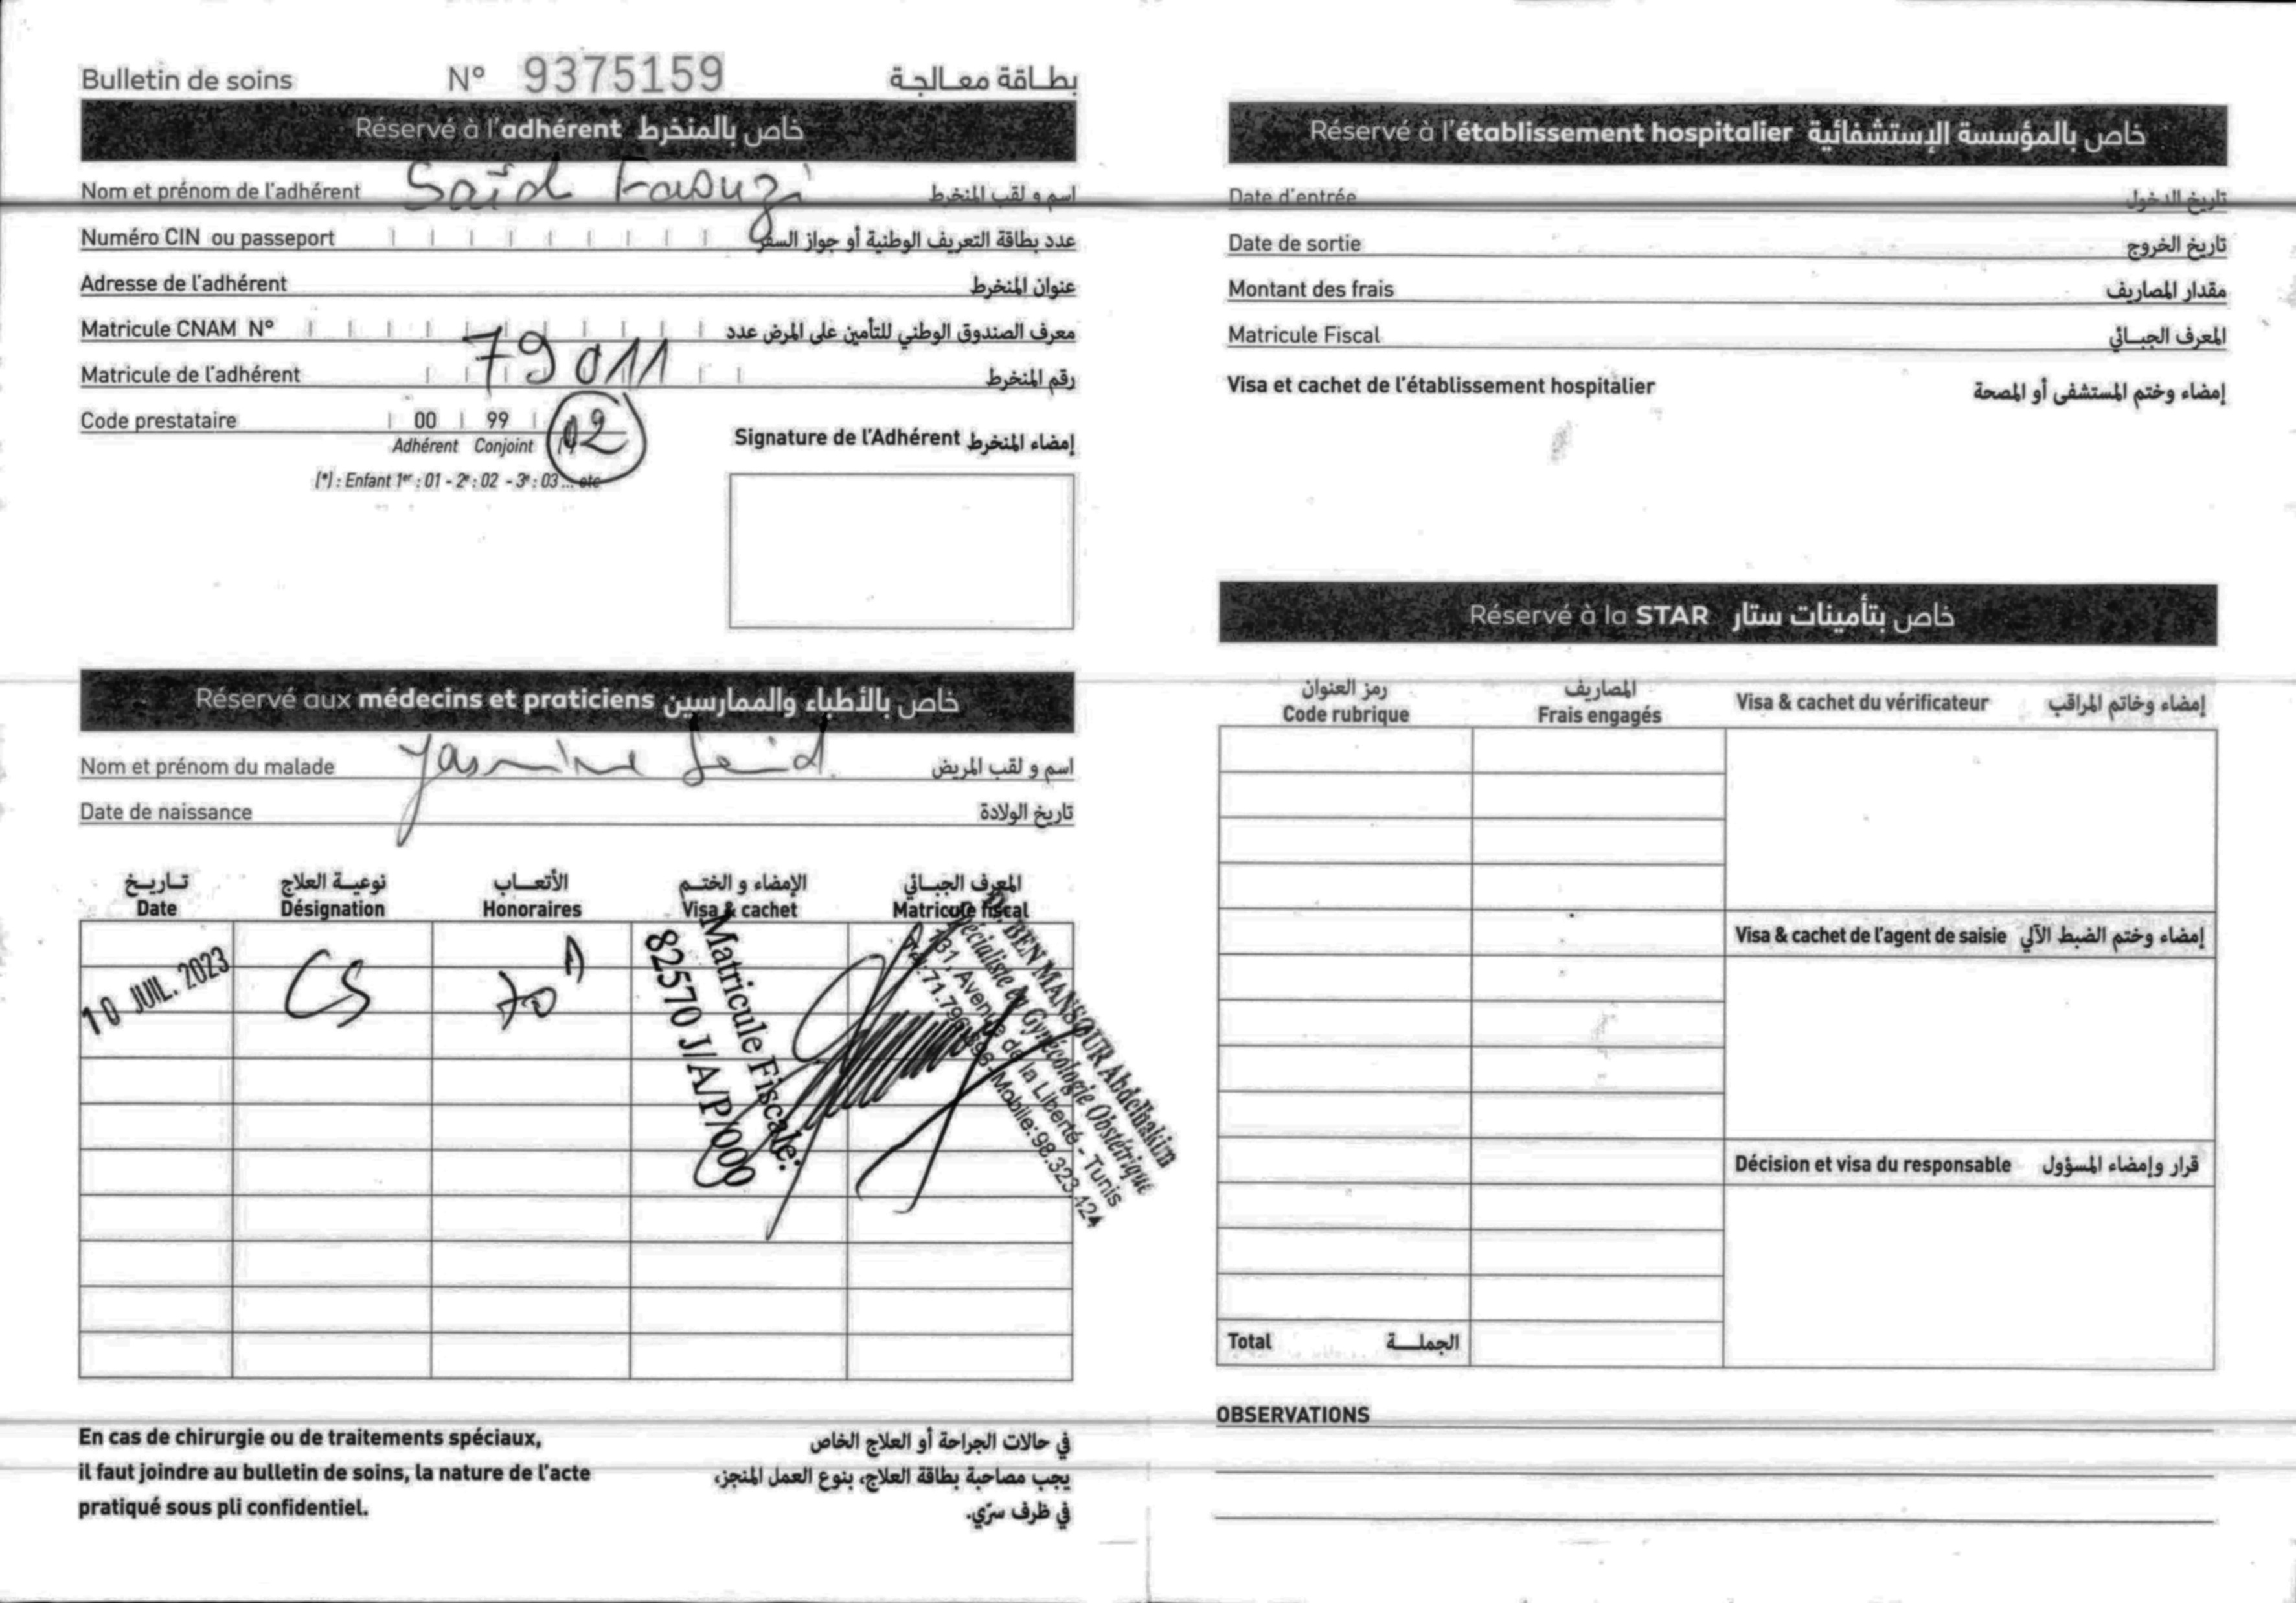 Bulletin de soins N° 9375159 بطاقة معالجة
Réservé à l'adhérent خاص بالمنخرط
Nom et prénom de l'adhérent Saïd Faouzi اسم و لقب المنخرط
Numéro CIN ou passeport عدد بطاقة التعريف الوطنية أو جواز السفر
Adresse de l'adhérent عنوان المنخرط
Matricule CNAM N° معرف الصندوق الوطني للتأمين على المرض عدد
Matricule de l'adhérent 79011 رقم المنخرط
Code prestataire 00 99 02
Adhérent Conjoint
(*) : Enfant 1er : 01 - 2e : 02 - 3e : 03 ... etc
Signature de l'Adhérent إمضاء المنخرط
Réservé aux médecins et praticiens خاص بالأطباء والممارسين
Nom et prénom du malade Yasmine Said اسم و لقب المريض
Date de naissance تاريخ الولادة
تاريخ نوعية العلاج الأتعاب الإمضاء و الختم المعرف الجبائي
Date Désignation Honoraires Visa & cachet Matricule fiscal
10 JUIL. 2023 CS 70 D
Matricule Fiscale:
82570 J/A/P/000
Dr. BEN MANSOUR Abdelhakim
Spécialiste en Gynécologie Obstétrique
131, Avenue de la Liberté - Tunis
Mobile: 98.323.424
En cas de chirurgie ou de traitements spéciaux,
il faut joindre au bulletin de soins, la nature de l'acte
pratiqué sous pli confidentiel.
في حالات الجراحة أو العلاج الخاص
يجب مصاحبة بطاقة العلاج، بنوع العمل المنجز،
في ظرف سرّي.
Réservé à l'établissement hospitalier خاص بالمؤسسة الإستشفائية
Date d'entrée تاريخ الدخول
Date de sortie تاريخ الخروج
Montant des frais مقدار المصاريف
Matricule Fiscal المعرف الجبائي
Visa et cachet de l'établissement hospitalier إمضاء وختم المستشفى أو المصحة
Réservé à la STAR خاص بتأمينات ستار
رمز العنوان المصاريف
Code rubrique Frais engagés Visa & cachet du vérificateur إمضاء وخاتم المراقب
Visa & cachet de l'agent de saisie إمضاء وختم الضبط الآلي
Décision et visa du responsable قرار وإمضاء المسؤول
Total الجملة
OBSERVATIONS